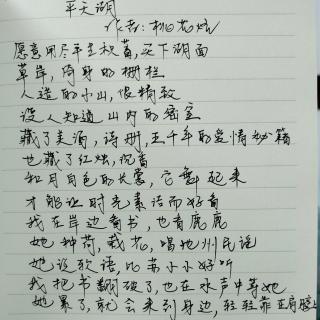 平天湖
作者：桃花烟
愿意用尽平生积蓄，买下湖面
草岸，倚身的栅栏
人造的小山，很精致
没人知道山内的密室
藏了美酒，诗册，三千年的爱情秘籍
也藏了红烛，沉香
和月白色的长裳，它舞起来
才能让时光素洁而好看
我在岸边看书，也看鹿鹿
她种荷，栽花，唱池州民谣
她说软语，比苏小小好听
我把书翻破了，也在水声中等她
她累了，就会来到身边，轻轻靠在肩膀上